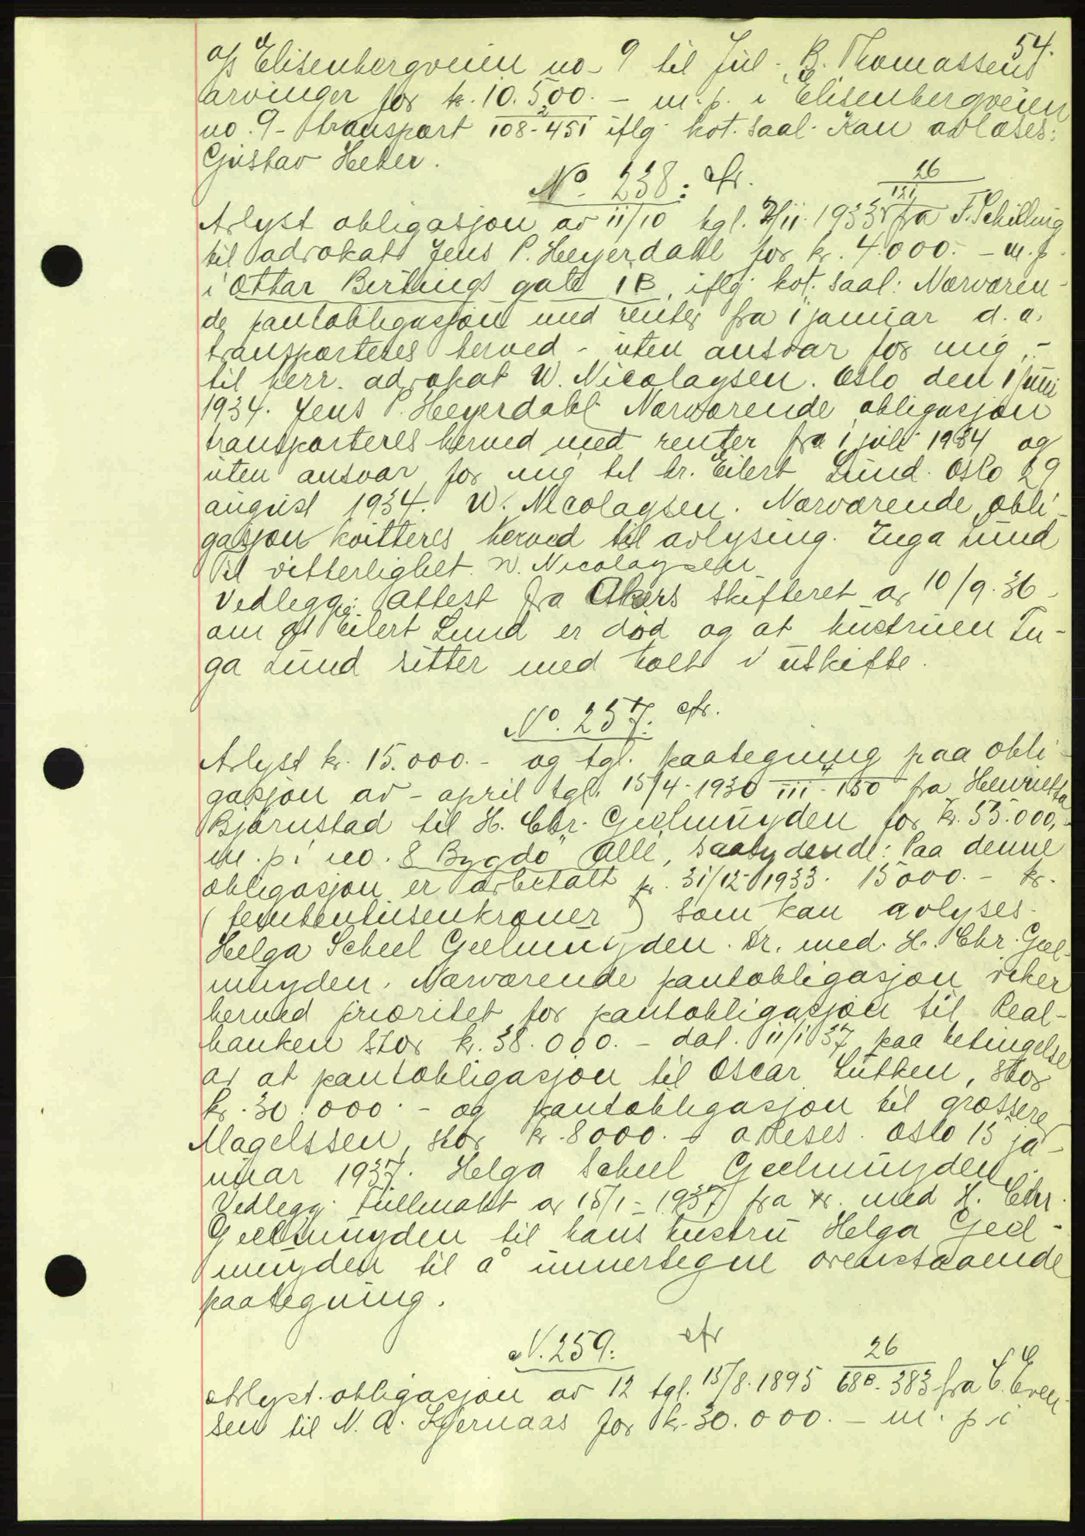 54.
A/S Elisenbergveien no. 9 til Jul. B. Thomassens
arvinger for kr. 10.500.- m. p. i Elisenbergveien
no. 9 - transport 108-451 iflg. kot. saal. Kan avlæses:
Gustav Heber.
No. 238: cfr. 26
121
Avlyst obligasjon av 11/10 tgl. 1933 fra F. Schilling
til advokat Jens P. Heyerdahl for kr. 4.000.- m. p.
i Ottar Birtings gate 1B, iflg. kot. saal: Nærværen-
de pantobligasjon med renter fra 1 januar d. a.
transporteres herved - uten ansvar for mig, -
til herr. advokat W. Nicolaysen. Oslo den 1 juni
1934. Jens P. Heyerdahl. Nærværende obligasjon
transporteres herved med renter fra 1 juli 1934 og
uten ansvar for mig til hr. Eilert Lund. Oslo 29
august 1934. W. Nicolaysen. Nærværende obli-
gasjon kvitteres herved til avlysing. Inga Lund
Til vitterlighet. W. Nicolaysen
Vedlegg: attest fra Akers skifteret av 10/9.36 -
om at Eilert Lund er død og at hustruen In-
ga Lund sitter med boet i uskifte.
No. 257: cfr.
Avlyst kr. 15.000.- og tgl. paategning paa obli-
gasjon av - april tgl. 15/4-1930 111-150 fra Henriette
Bjørnstad til H. Chr. Geelmuyden for kr. 53.000.-
m. p. i no. 8 Bygdö Alle, saalydende: Paa denne
obligasjon er avbetalt pr. 31/12 1933. 15000.- kr.
(femtentusenkroner) som kan avlyses.
Helga Scheel Geelmuyden. Dr. med. H. Chr. Geel-
muyden. Nærværende pantobligasjon viker
herved prioritet for pantobligasjon til Real-
banken stor kr. 38.000.- dat. 11/1 37 paa betingelse
av at pantobligasjon til Oscar Lütken, stor
kr. 30.000.- og pantobligasjon til grosserer
Magelssen, stor kr. 8000.- avleses. Oslo 15 ja-
nuar 1937. Helga Scheel Geelmuyden.
Vedlegg: Fullmakt av 15/1-1937 fra dr. med H. Chr.
Geelmuyden til hans hustru Helga Geel-
muyden til å unnertegne ovenstaaende
paategning.
N. 259: cfr 26
Avlyst obligasjon av 12 tgl. 15/8.1895 68B-383 fra C. Even-
sen til N. A. Kjernaas for kr. 30.000.- m. p i